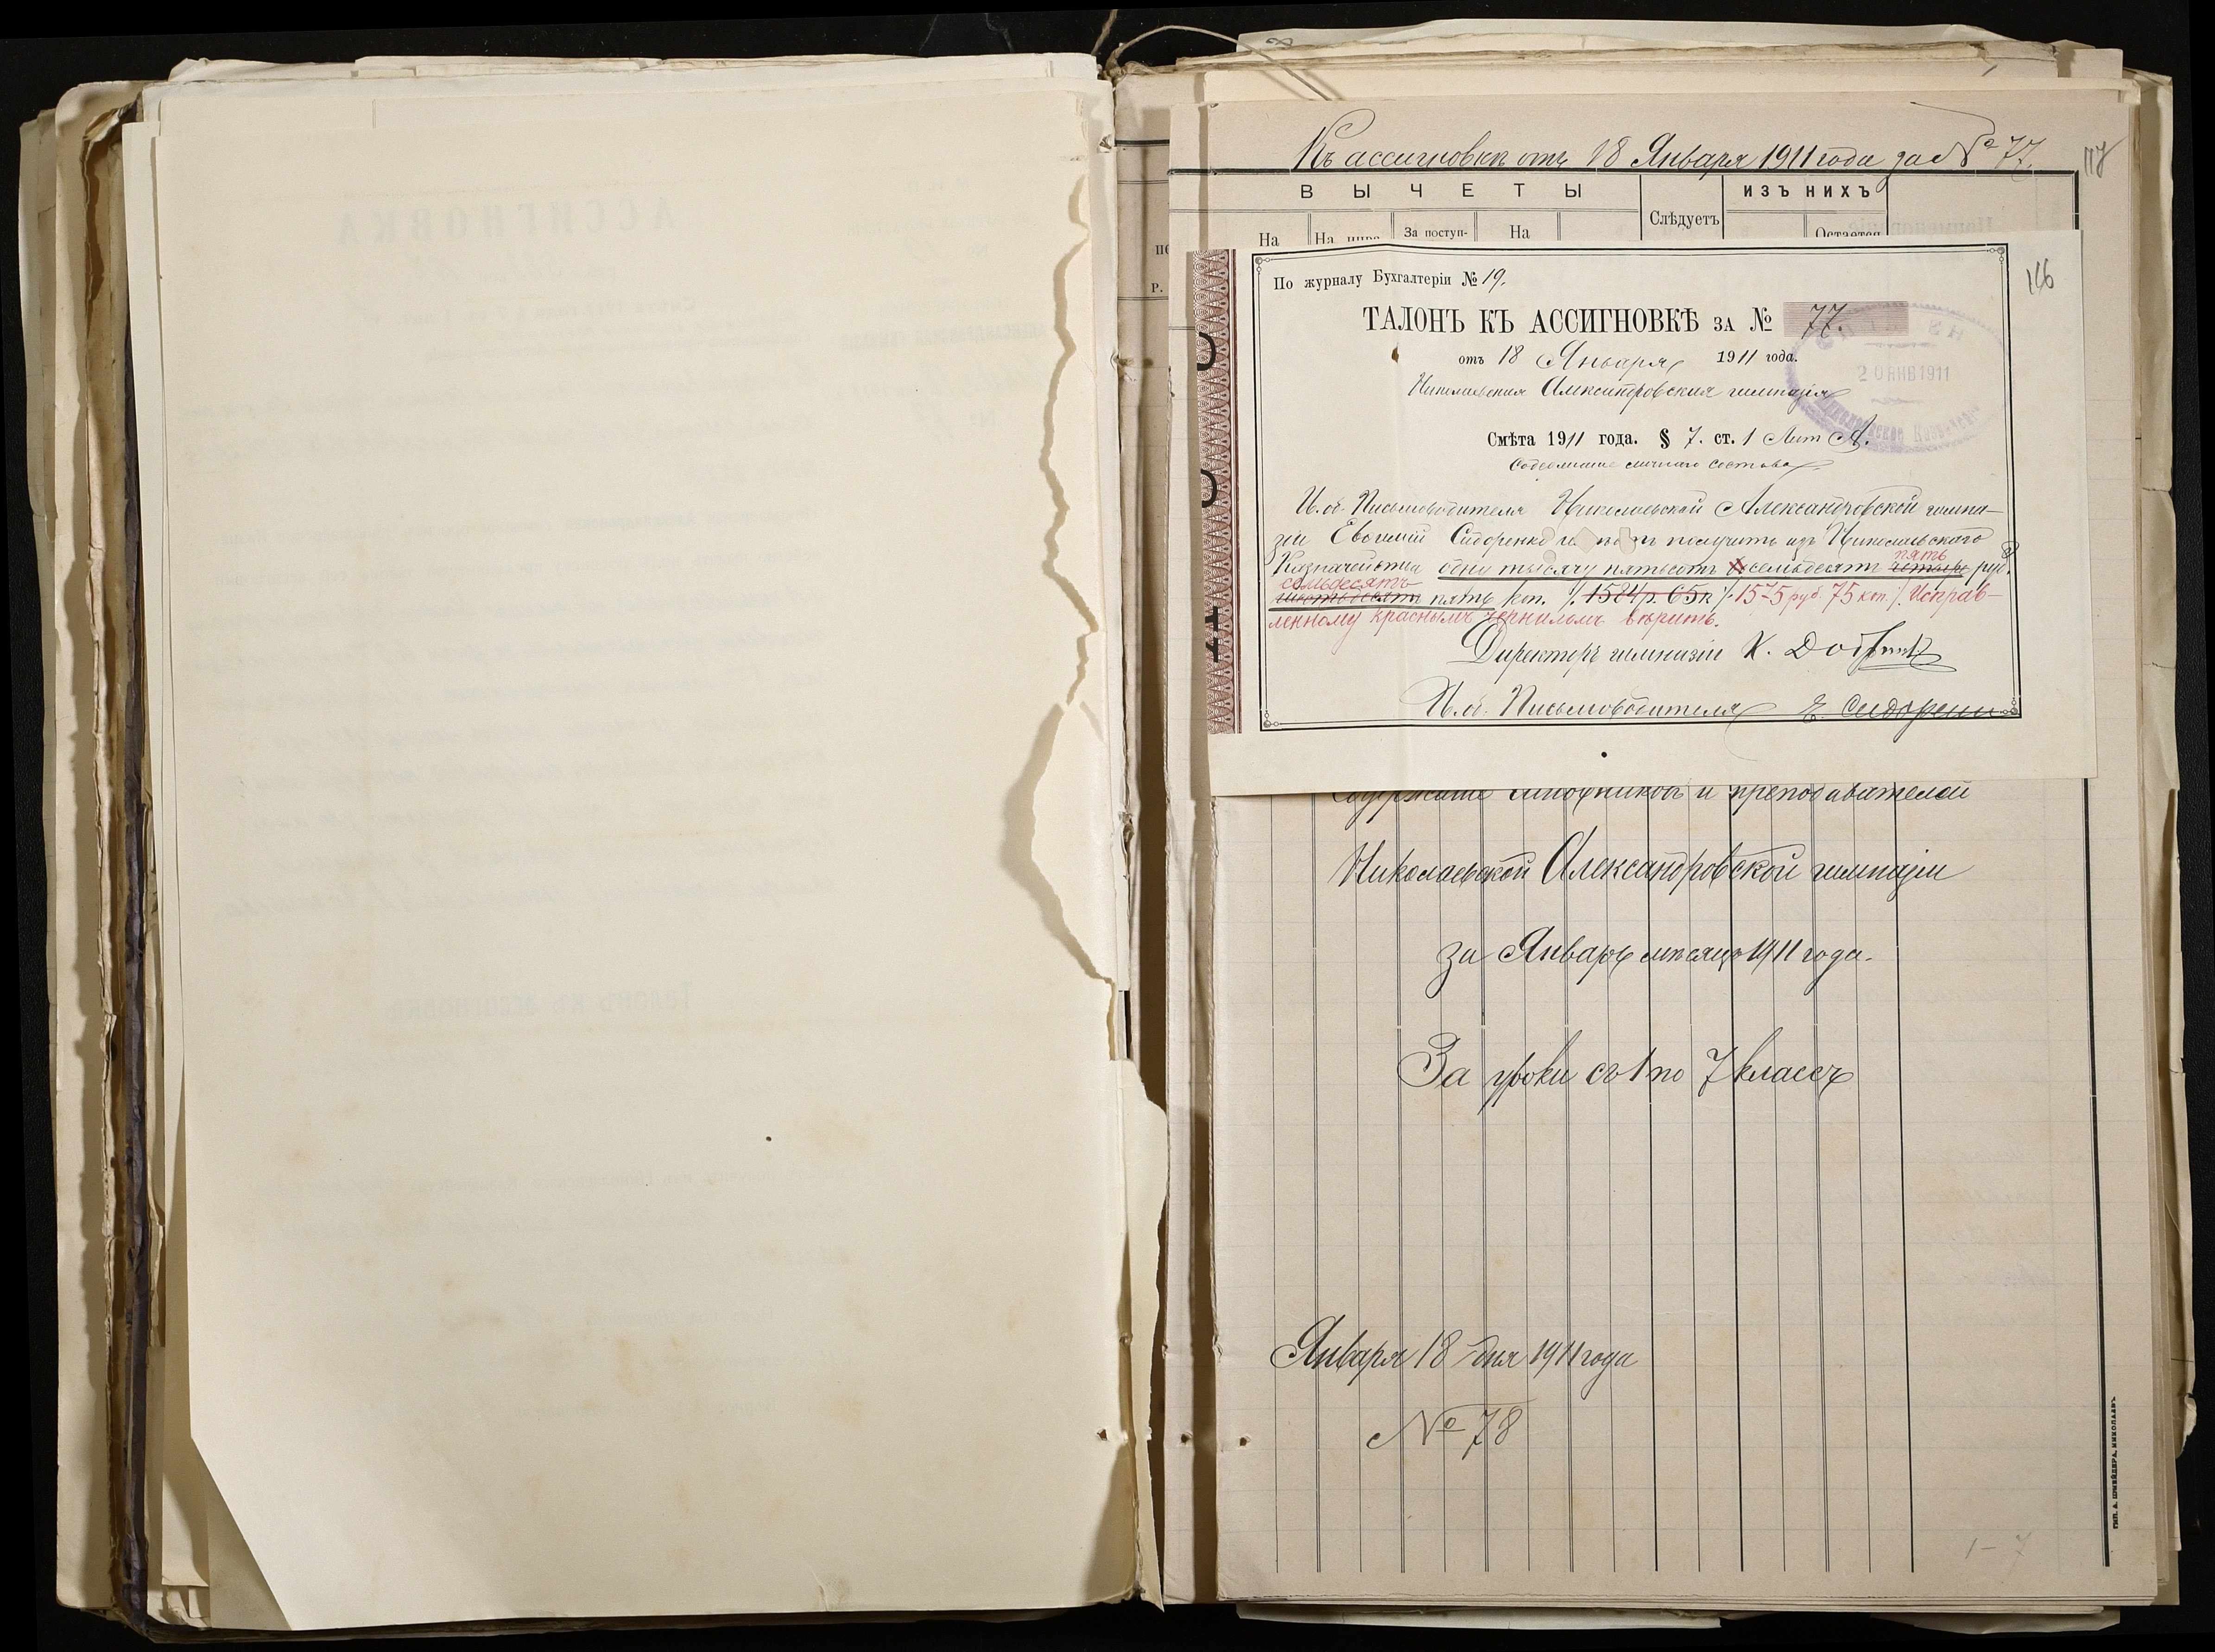 Къ ассигновкѣ отъ 18 Января 1911 года за № 77.
117
ВЫЧЕТЫ
ИЗЪ НИХЪ
Слѣдуетъ
На
На
За поступ-
На
Остается
Р.
116
По журналу Бухгалтеріи № 19.
ТАЛОНЪ КЪ АССИГНОВКѢ ЗА № 77.
отъ 18 Января 1911 года.
20 ЯНВ 1911
Николаевская Александровская гимназія
Смѣта 1911 года. § 7. ст. 1 Лит А.
Содержание личнаго состава
И.об. Письмоводителя Николаевской Александровской гимна-
зіи Евѳимій Сидоренко получить изъ Николаевскаго
пять
Казначейства одну тысячу пятьсотъ семьдесятъ четыре руб.
семьдесятъ
шестьдесятъ пять коп. /. 1584 р. 65 к /. 1575 руб. 75 коп. /. Исправ-
ленному красными чернилами вѣрить.
Директоръ гимназіи К.
И.об. Письмоводителя Е. Сидоренко
Содержание чиновниковъ и преподавателей
Николаевской Александровской гимназіи
за Январь мѣсяцъ 1911 года.
За уроки съ 1 по 7 классъ
Января 18 дня 1911 года
№ 78
1-7
ТИП. А. ШНЕЙДЕРА, НИКОЛАЕВЪ